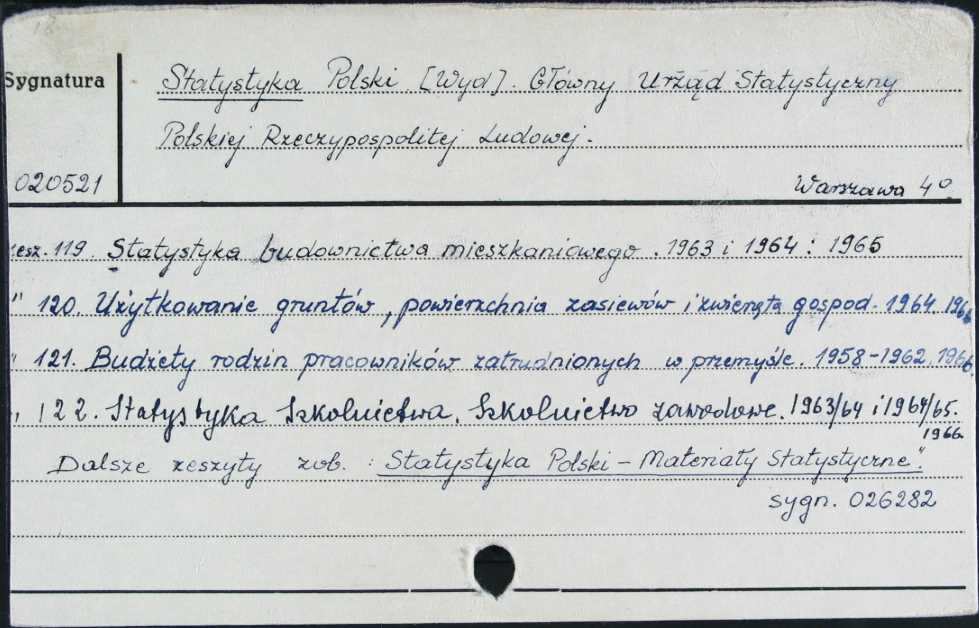 Sygnatura
Statystyka Polski [Wyd]. Główny Urząd Statystyczny
Polskiej Rzeczypospolitej Ludowej.
020521
Warszawa 4°
zesz. 119. Statystyka budownictwa mieszkaniowego. 1963 i 1964 : 1965
" 120. Użytkowanie gruntów, powierzchnia zasiewów i zwierzęta gospod. 1964. 1966
" 121. Budżety rodzin pracowników zatrudnionych w przemyśle. 1958-1962. 1966.
" 122. Statystyka Szkolnictwa. Szkolnictwo zawodowe. 1963/64 i 1964/65.
1966.
Dalsze zeszyty zob. : Statystyka Polski - Materiały Statystyczne".
sygn. 026282